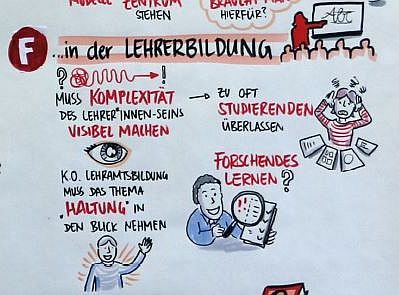 MODELLE ZENTRUM
STEHEN
BRAUCHT MAN
HIERFÜR?
ABC
F ...in der LEHRERBILDUNG
? !
MUSS KOMPLEXITÄT
DES LEHRER*INNEN-SEINS
VISIBEL MACHEN
→ ZU OFT
STUDIERENDEN
ÜBERLASSEN
K.O. LEHRAMTSBILDUNG
MUSS DAS THEMA
"HALTUNG" IN
DEN BLICK NEHMEN
FORSCHENDES
LERNEN?